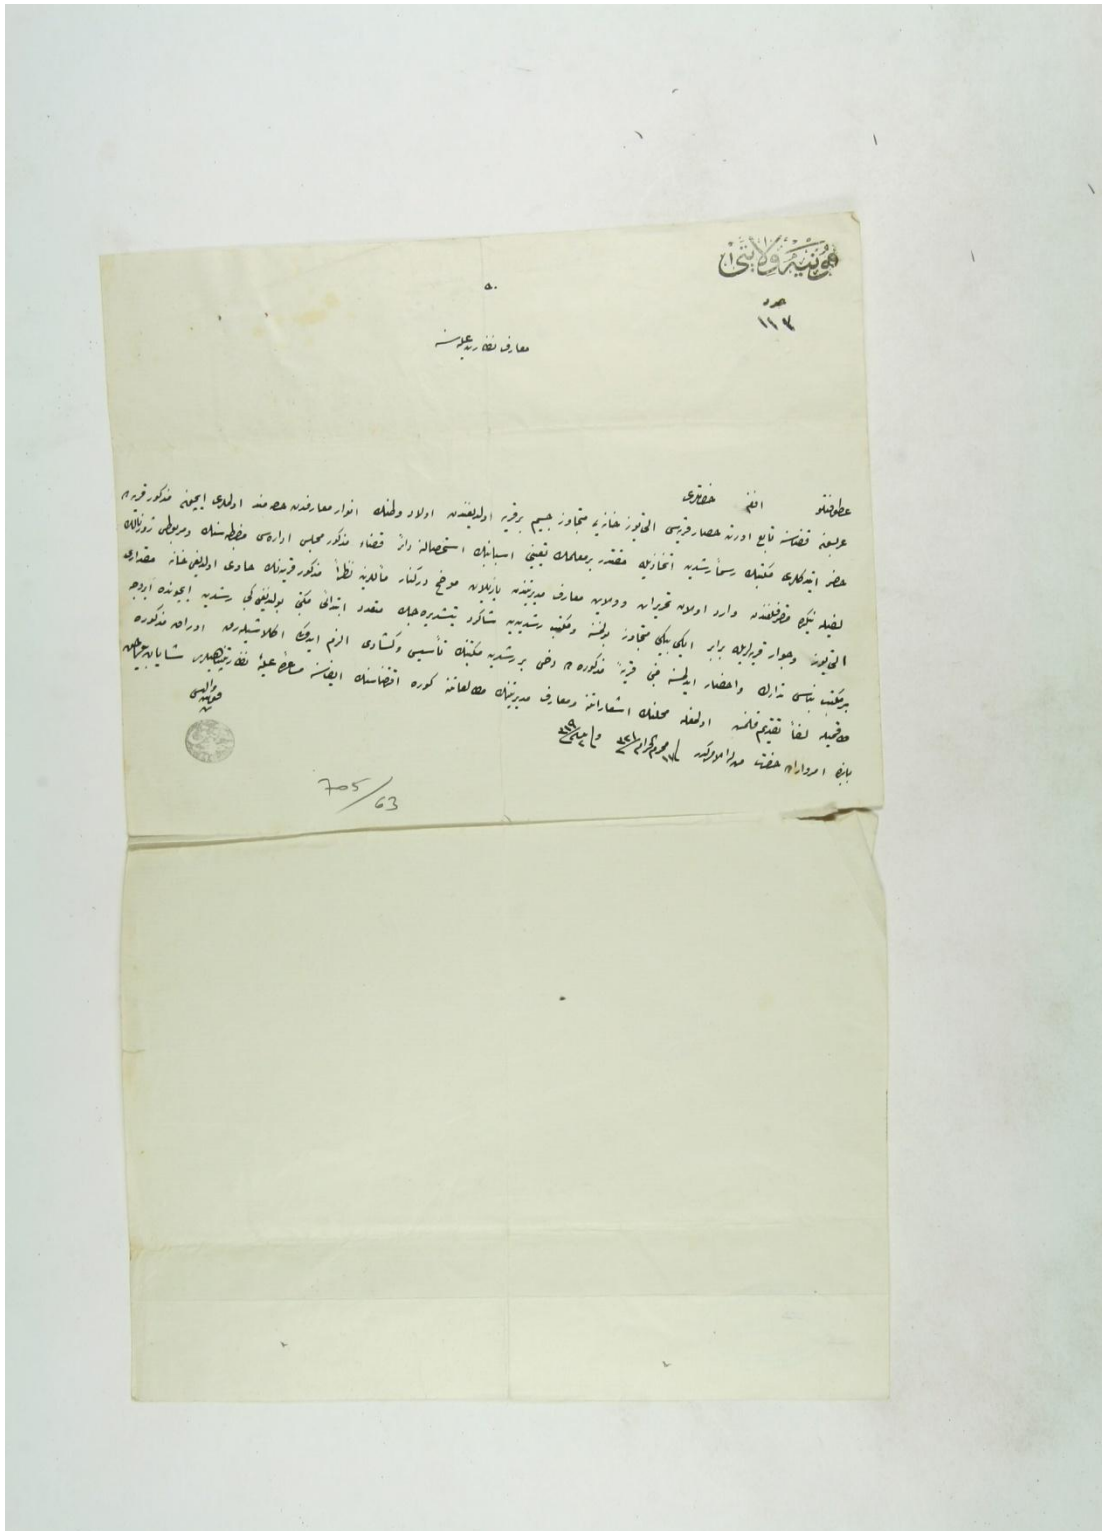 قونیه ولایتی
عدد
١١٣
معارف نظارت جلیله‌سنه
عطوفتلو افندم حضرتلری
قضاسنه تابع اورته حصار قریه‌سی التیوز خانه‌یی متجاوز جسیم بر قریه اولدیغندن اولاد وطنك انوار معارفدن حصه‌مند اولملری ایچون مذکور قریه‌ده
ایتدکلری مکتبك رسماً رشدیه اتخاذیله مقتدر بر معلمك تعیینی اسبابنك استحصالنه دائر قضاء مذکور مجلس اداره‌سی مضبطه‌سنك
لفیله نیکده متصرفلغندن وارد اولان تحریرات وولایت معارف مدیریتندن یازیلان موضح درکنار مآللرینه نظراً مذکور قریه‌نك حاوی اولدیغی خانه مقداری
التیوز وجوار قریه‌لریله برابر ایکی بیکی متجاوز بولنمسنه ومکتب رشدیه‌یه شاکرد یتشدیره‌جك متعدد ابتدائی مکتبی بولندیغی کبی رشدیه ایچونده
بر مکتب بناسی تدارك واحضار ایدلمسنه مبنی قریهٔ مذکوره‌ده دخی بر رشدیه مکتبنك تأسیس وکشادی الزم ایدوکی اکلاشیله‌رق اوراق مذکوره
لفاً تقدیم قلنمش اولمغله محلنك اشعاراتنه ومعارف مدیریتنك مطالعاتنه کوره اقتضاسنك ایفاسنه مساعدهٔ علیهٔ نظارتپناهیلری شایان
بابنده امر وفرمان حضرت من له الامرکدر ١٧ محرم الحرام ٣٢١
قونیه والیسی
705/63